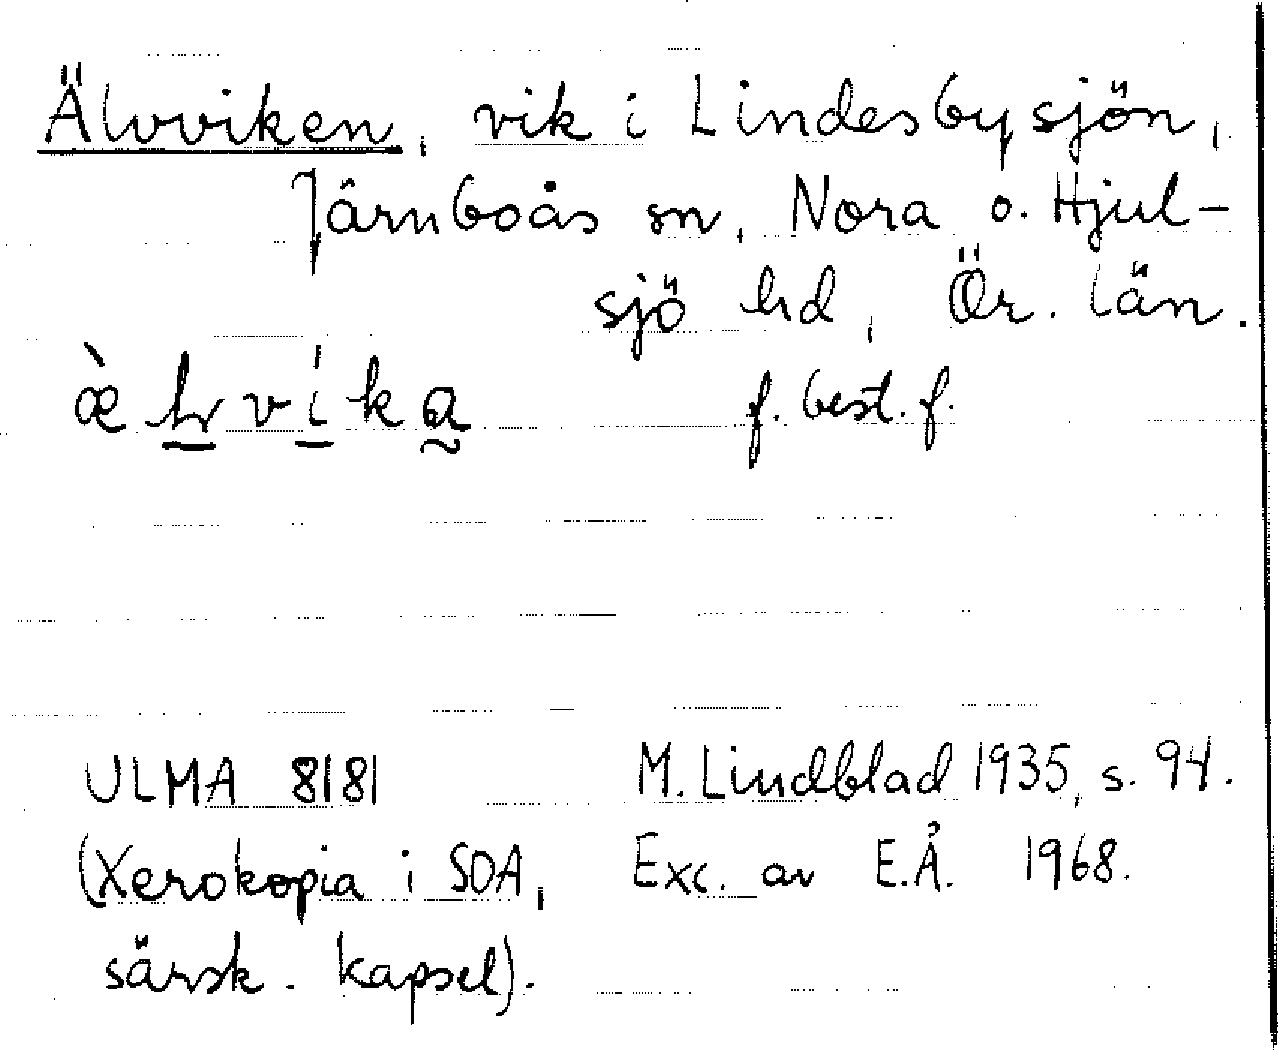 Älvviken, vik i Lindesbysjön,
Järnboås sn, Nora o. Hjul-
sjö hd, Ör. län.
f. best. f.
ULMA 8181 M. Lindblad 1935, s. 94.
(Xerokopia i SOA, Exc. av E.Å. 1968.
särsk. kapsel).